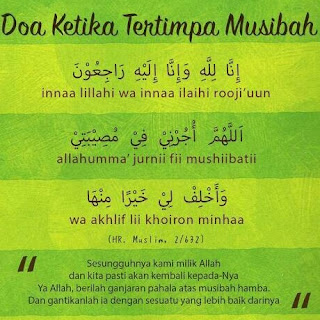 Doa Ketika Tertimpa Musibah
إِنَّا لِلَّهِ وَإِنَّا إِلَيْهِ رَاجِعُوْنَ
innaa lillahi wa innaa ilaihi rooji'uun
اَللَّهُمَّ أْجُرْنِيْ فِيْ مُصِيْبَتِيْ
allahumma' jurnii fii mushiibatii
وَأَخْلِفْ لِيْ خَيْرًا مِنْهَا
wa akhlif lii khoiron minhaa
(HR. Muslim, 2/632)
Sesungguhnya kami milik Allah
dan kita pasti akan kembali kepada-Nya
Ya Allah, berilah ganjaran pahala atas musibah hamba.
Dan gantikanlah ia dengan sesuatu yang lebih baik darinya